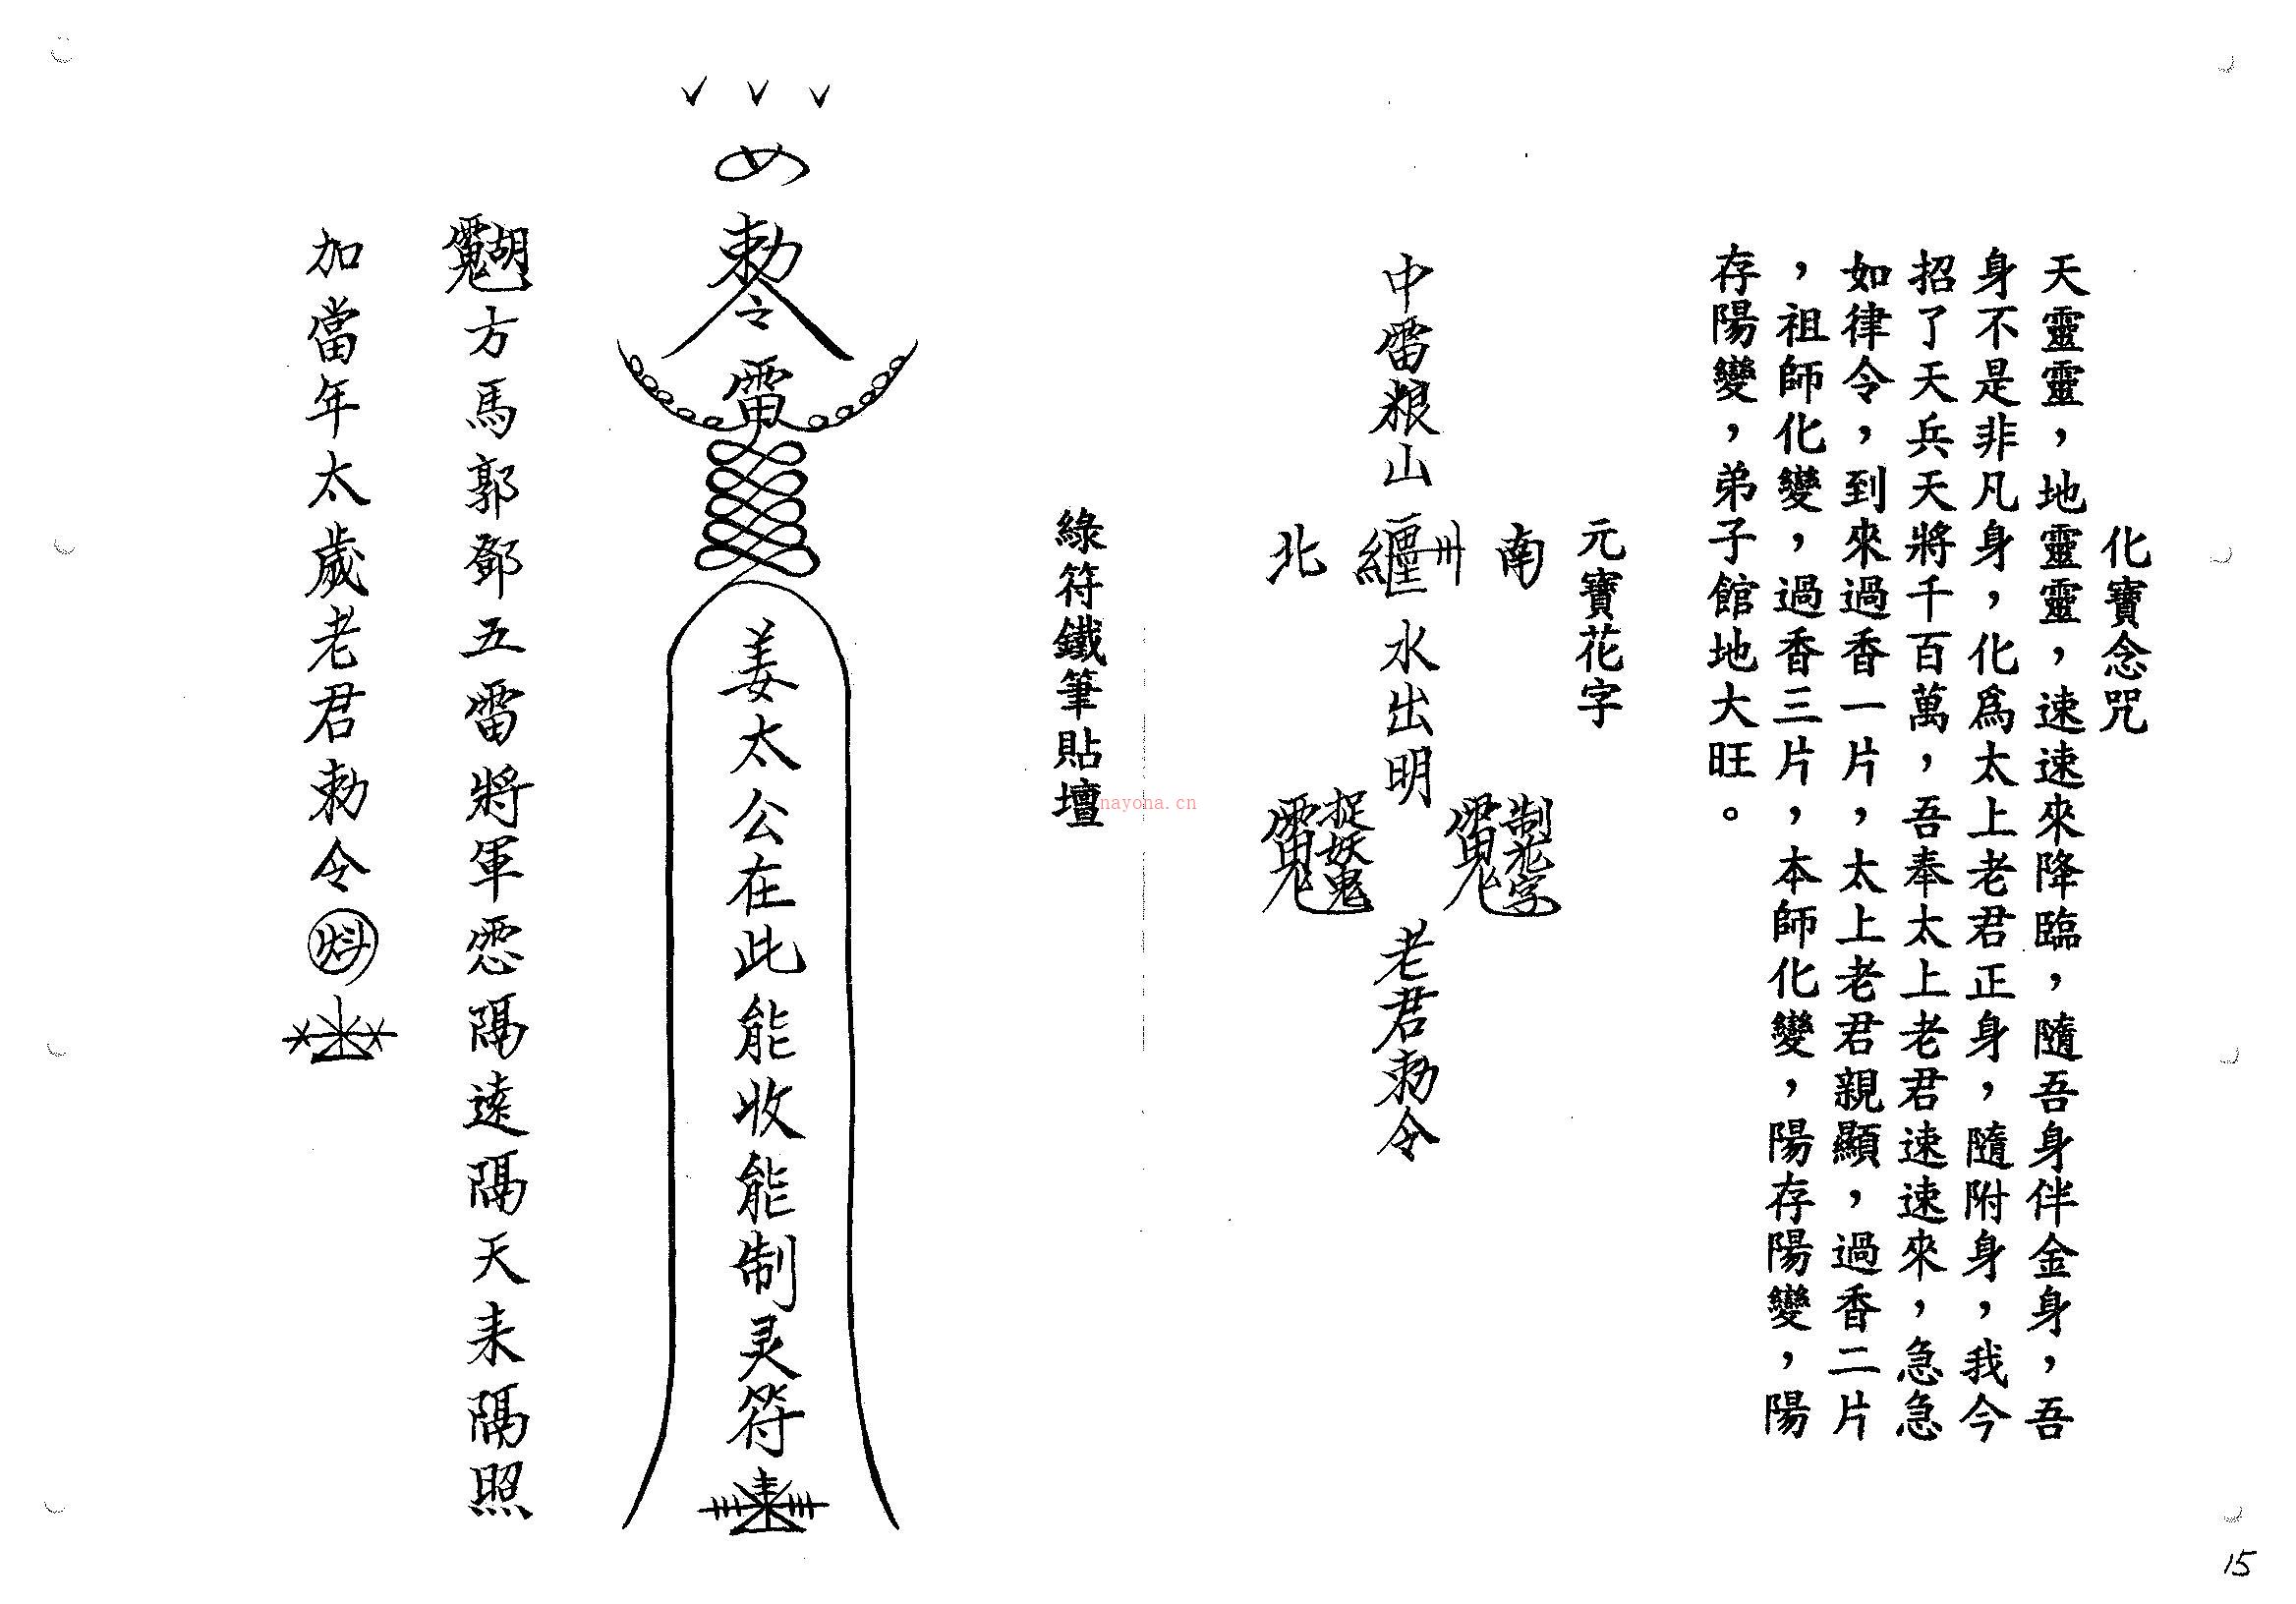 化寶念咒
天靈靈，地靈靈，速速來降臨，隨吾身伴金身，吾
身不是非凡身，化爲太上老君正身，隨附身，我今
招了天兵天將千百萬，吾奉太上老君速速來，急急
如律令，到來過香一片，太上老君親顯，過香二片
，祖師化變，過香三片，本師化變，陽存陽變，陽
存陽變，弟子館地大旺。
元寶花字
南
制花字
中雷粮山
水出明
老君勅令
北
捉妖鬼
綠符鐵筆貼壇
nayona.cn
勅令雷
姜太公在此能收能制灵符
方馬郭鄧五雷將軍
隔遠隔天来隔照
加當年太歲老君勅令
15